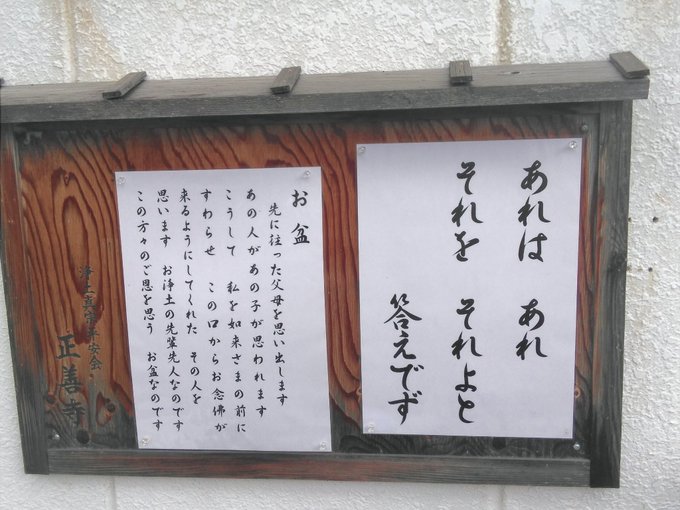 あれは あれ
それを それよと
答えでず
お盆
先に往った父母を思い出します
あの人があの子が思われます
こうして 私を如来さまの前に
すわらせ この口からお念佛が
来るようにしてくれた その人を
思います お浄土の先輩先人なのです
この方々のご恩を思う お盆なのです
浄土真宗平安会
正善寺